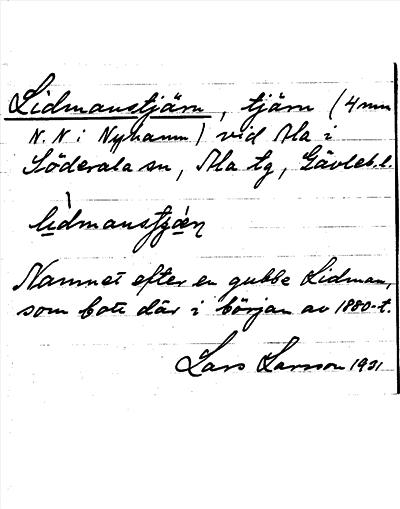 Lidmanstjärn, tjärn (4 mm
N. N i Nyhamn) vid Ala i
Söderala sn, Ala tg, Gävleb. l.
lìdmanstjǽɳ
Namnet efter en gubbe Lidman,
som bott där i början av 1880-t.
Lars Larsson 1931